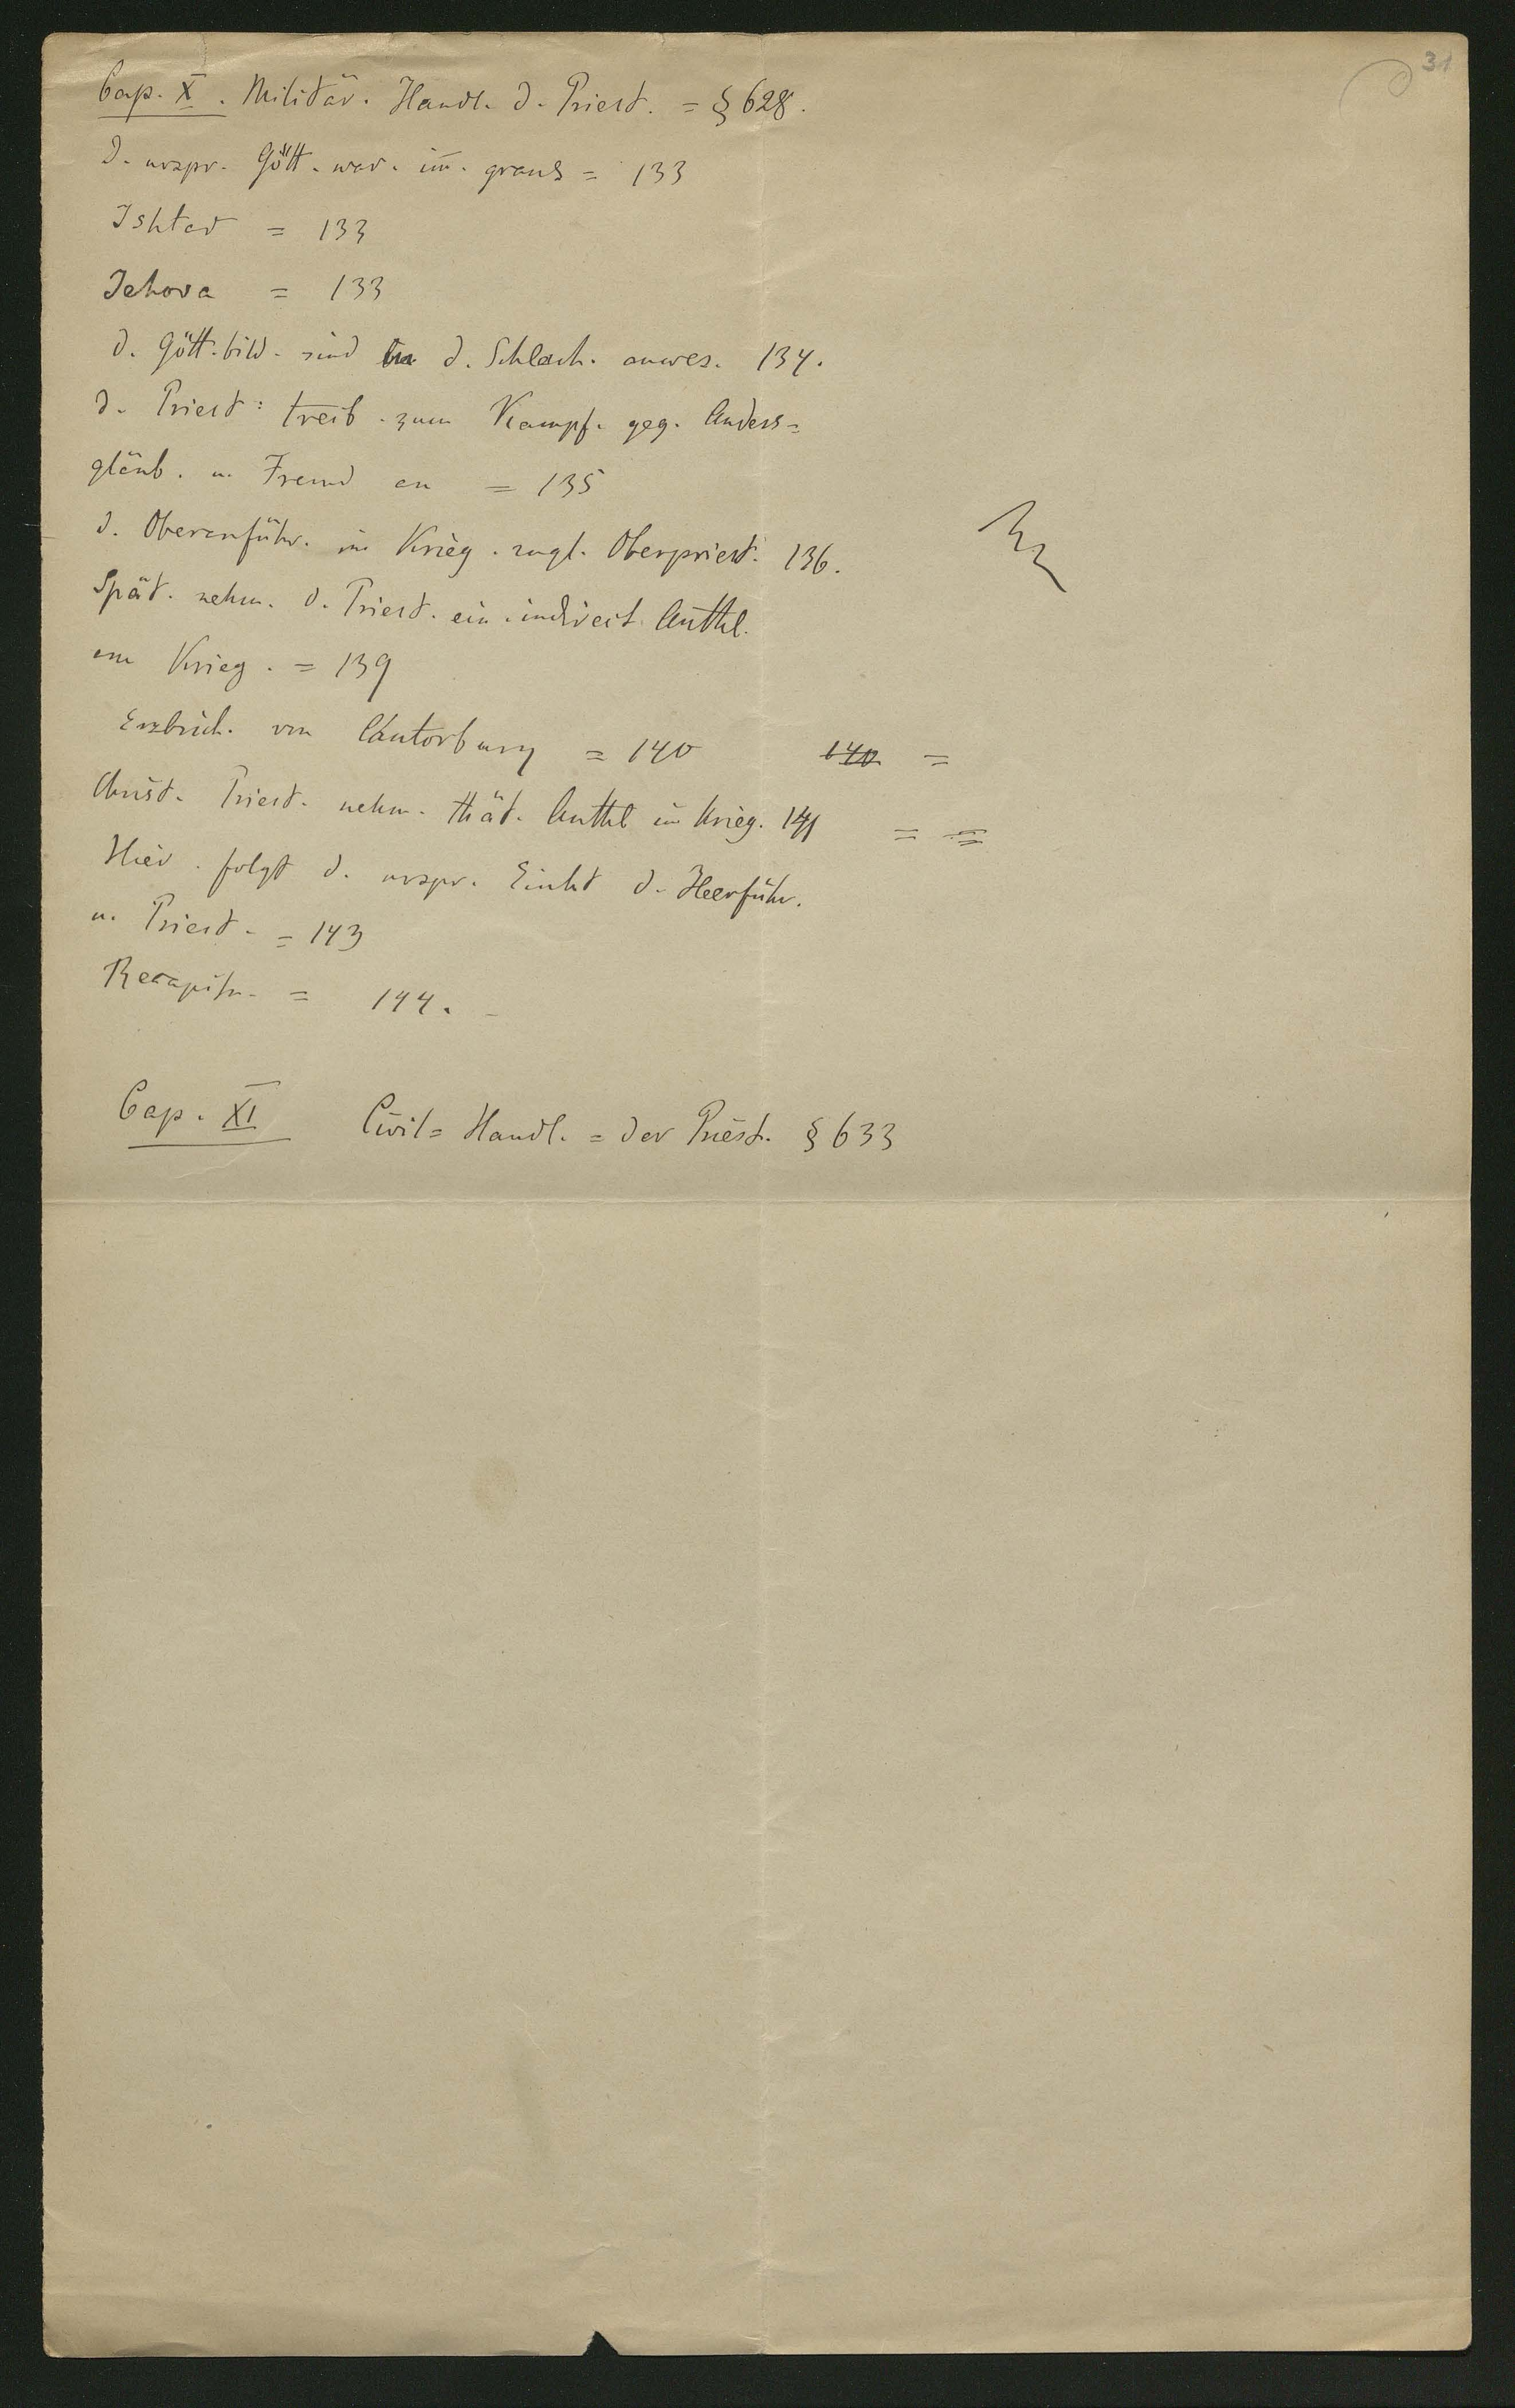 31
Cap. X. Militär. Handl. d. Priest. = § 628.
D. urspr. Gött. war. im̄. graus = 133
Ishtar = 133
Jehova = 133
d. Gött.bild. sind in d. Schlach. anwes. 134.
d. Priest: treib. zum Kampf. geg. Anders=
gläub. u. Fremd an = 135
d. Oberanführ. im Krieg. zugl. Oberpriest. 136.
Spät. nehm. d. Priest. ein. indirect. Antthl.
am Krieg. = 139
Erzbisch. von Cantorbury = 140 140 =
Christ. Priest. nehm. thät. Antthl im Krieg. 141 = =
Hier. folgt d. urspr. Einht d. Heerführ.
u. Priest. = 143
Recapitu. = 144.
Cap. XI Civil= Handl. = der Priest. § 633